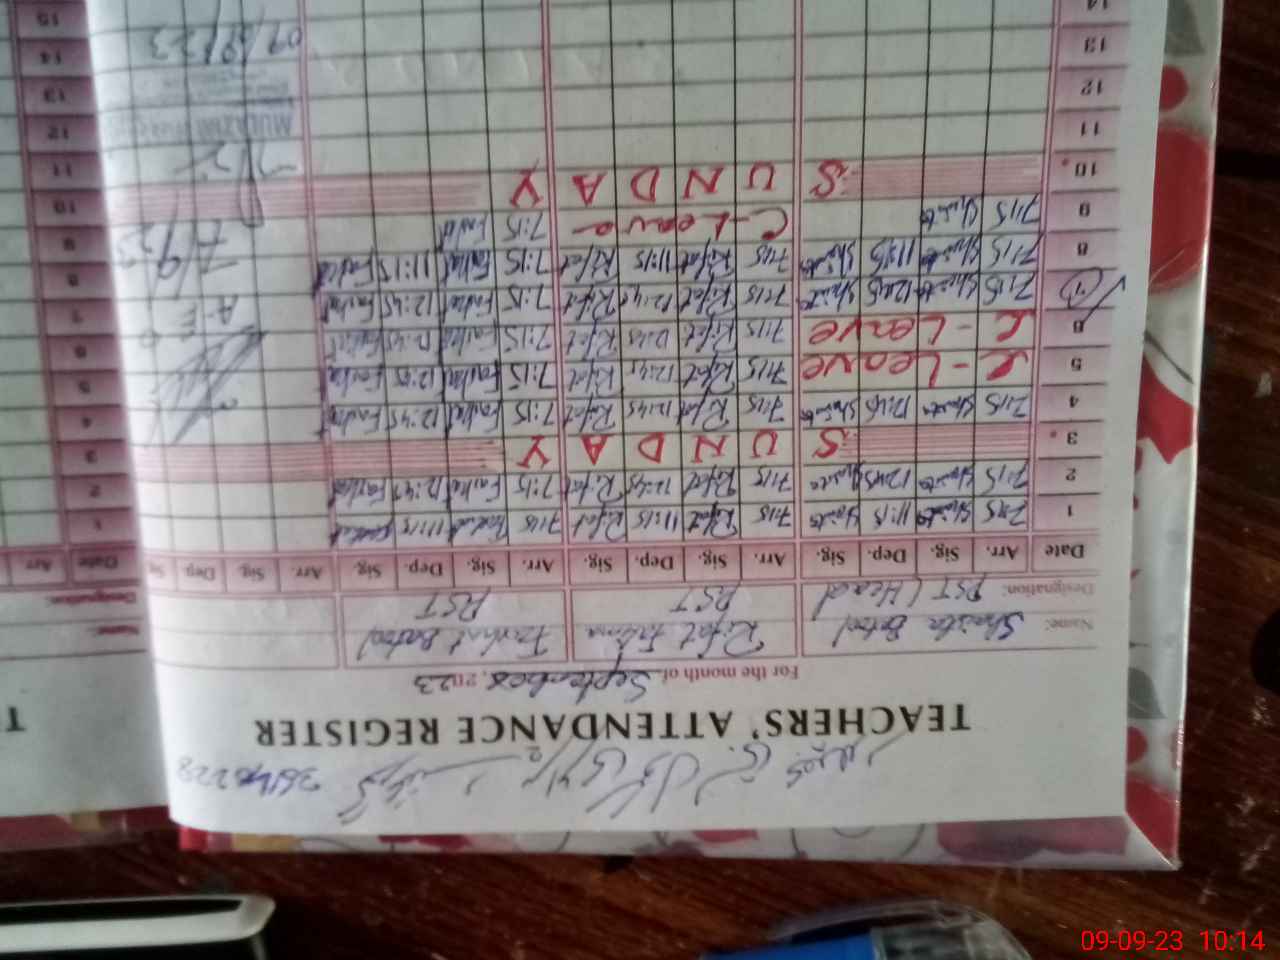 36140228
TEACHERS' ATTENDANCE REGISTER
For the month of September, 2023
Name: Shaista Batool Rifat Fatima Farhat Batool
Designation: PST (Head PST PST
Date Arr. Sig. Dep. Sig. Arr. Sig. Dep. Sig. Arr. Sig. Dep. Sig. Arr. Sig. Dep.
1 7:15 Shaista 11:15 Shaista 7:15 Rifat 11:15 Rifat 7:15 Farhat 11:15 Farhat
2 7:15 Shaista 12:45 Shaista 7:15 Rifat 12:45 Rifat 7:15 Farhat 12:45 Farhat
3 S U N D A Y
4 7:15 Shaista 12:45 Shaista 7:15 Rifat 12:45 Rifat 7:15 Farhat 12:45 Farhat
5 C-Leave 7:15 Rifat 12:45 Rifat 7:15 Farhat 12:45 Farhat
6 C-Leave 7:15 Rifat 12:45 Rifat 7:15 Farhat 12:45 Farhat
7 7:15 Shaista 12:45 Shaista 7:15 Rifat 12:45 Rifat 7:15 Farhat 12:45 Farhat
8 7:15 Shaista 11:15 Shaista 7:15 Rifat 11:15 Rifat 7:15 Farhat 11:15 Farhat
9 7:15 Shaista C-Leave 7:15 Farhat
10 S U N D A Y
11
12
13
14
09/9/23
Name:
Designation:
Date Arr
1
2
3
4
5
6
7
8
9
10
11
12
13
14
15
09-09-23 10:14